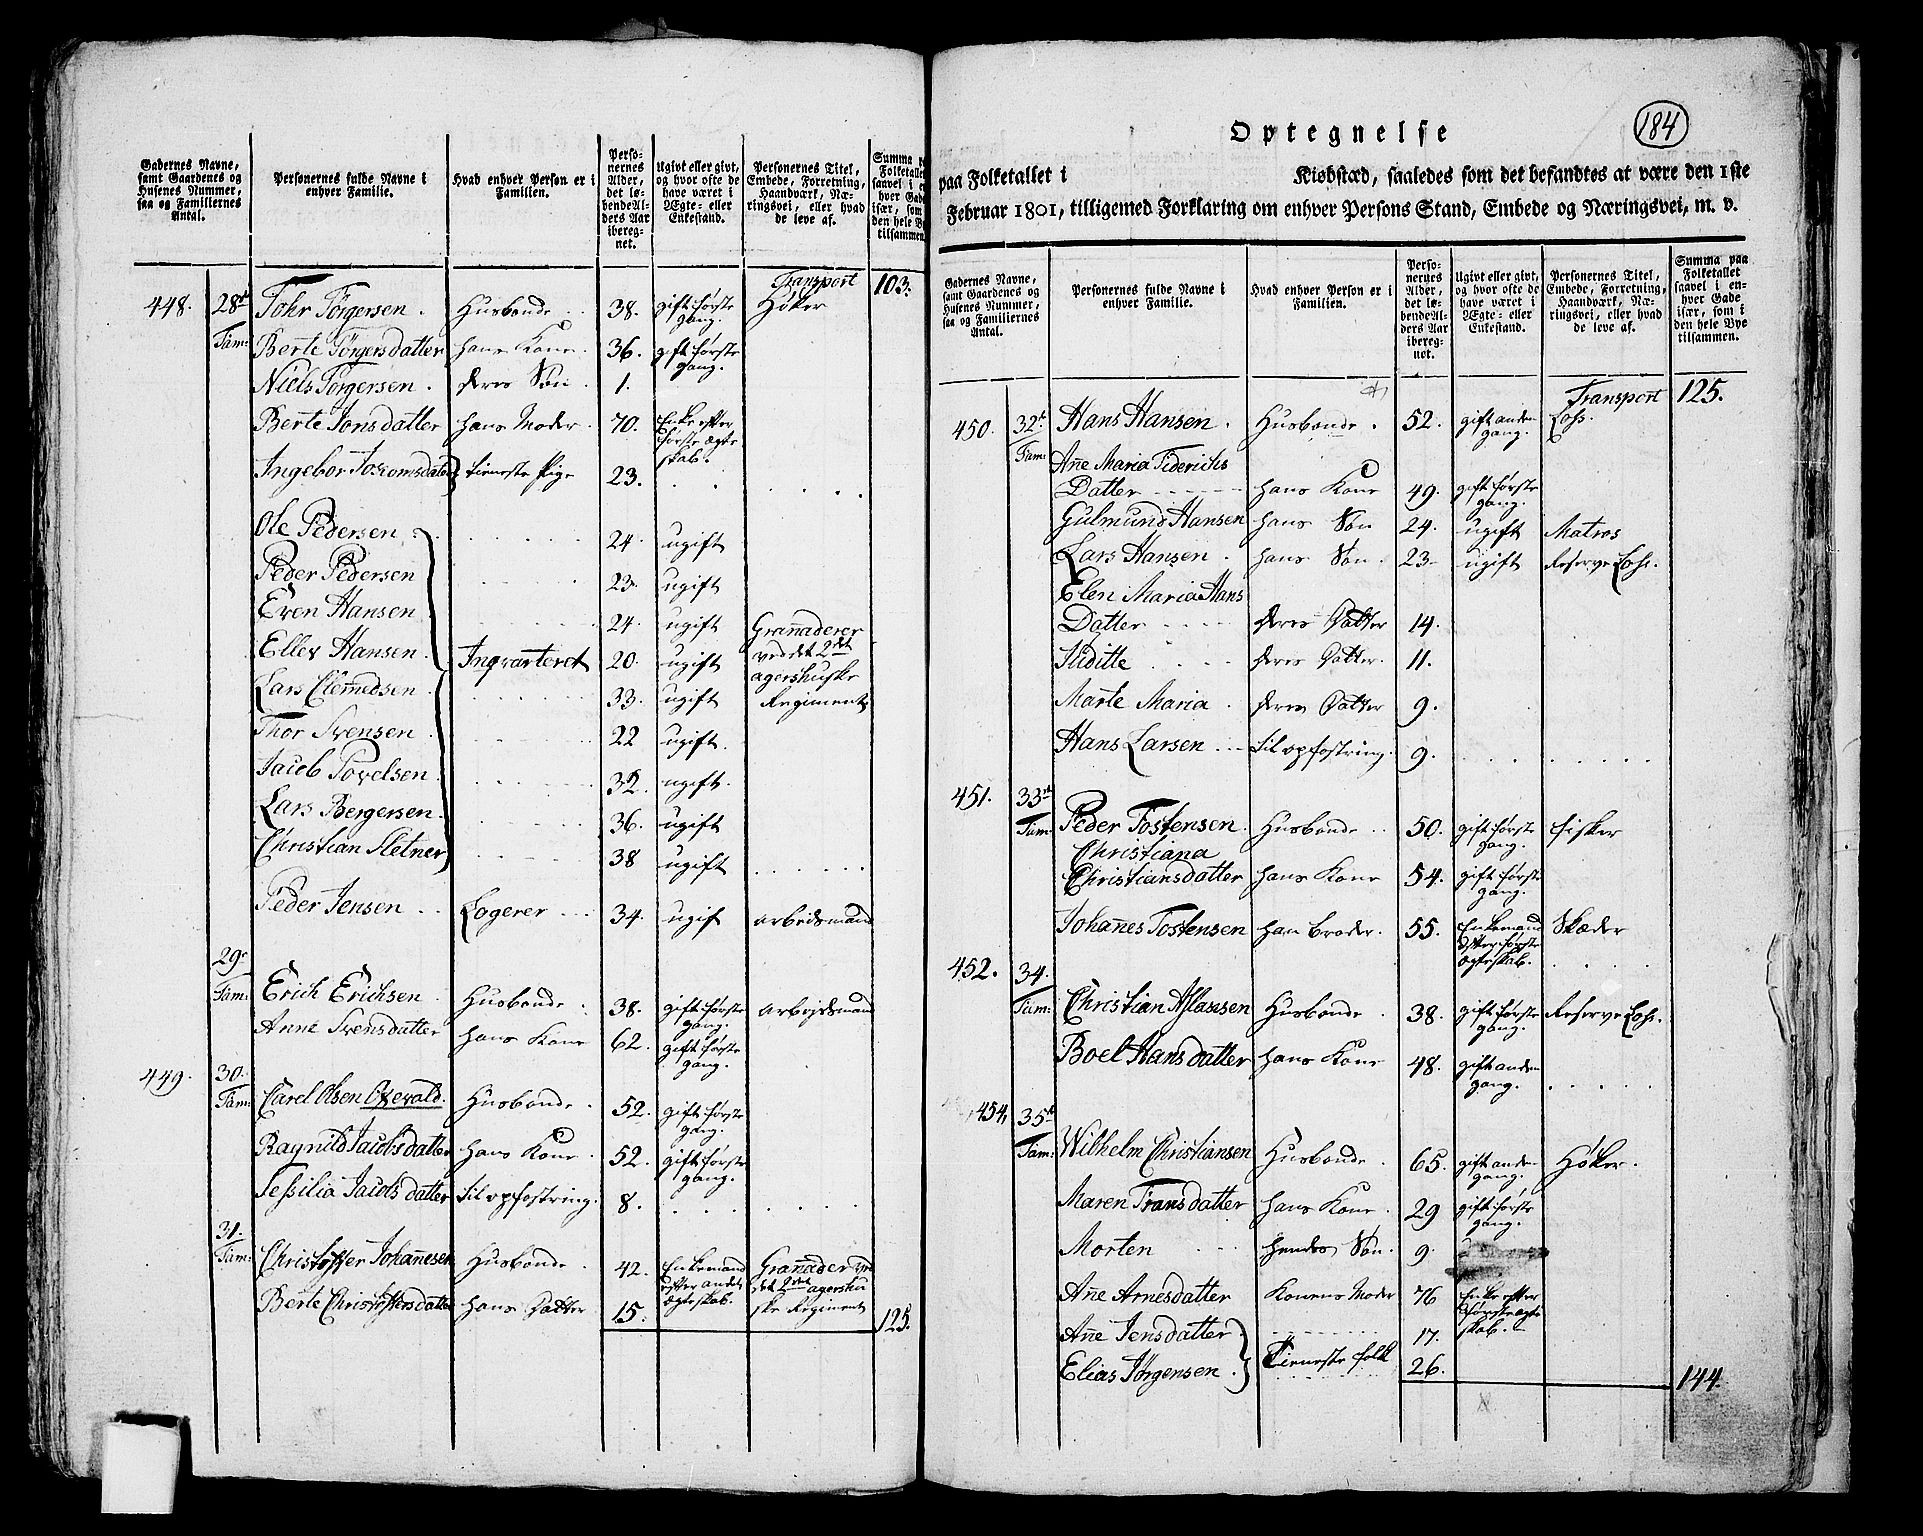 Gadernes Navne,
samt Gaardenes og
Husenes Nummer,
saa og Familiernes
Antal.
Personernes fulde Navne i
enhver Familie.
Hvad enhver Person er i
Familien.
Perso-
nernes
Alder,
det lø-
bende Al-
ders Aar
ibereg-
net.
Ugivt eller givt,
og hvor ofte de
have været i
Ægte- eller
Enkestand.
Personernes Titel,
Embede, Forretning,
Haandværk, Næ-
ringsvei, eller hvad
de leve af.
Summa p
Folketallet
saavel i e
hver Gad
især, som
den hele By
tilsammen.
Transport 103.
448. 28de Tohr Törgersen . Husbonde .. 38. gift første Høker
gang.
Fam: Berte Törgersdatter hans Kone . 36. gift første
gang.
Niels Törgersen . deres Søn . 1.
Berte Jonsdatter hans Moder . 70. Enke efter
første ægte
skab.
Ingebor tieneste Pige 23.
Ole Pedersen 24. ugift
Peder Pedersen 23. ugift
Even Hansen 24. ugift Granaderer
Ellev Hansen Inqvarteret 20. ugift ved det 2det
agershuske
Lars Clemedsen 33. ugift Regiment
Thor Svensen 22 ugift.
Jacob Povelsen 32. ugift.
Lars Bergersen 36. ugift
Christian Sletner 38 ugift
Peder Jensen .. Logerer 34. ugift arbeidsmand
29.
Fam: Erich Erichsen Husbonde . 38. gift første arbejdsmand
gang.
Anne Svensdatter hans Kone 62. gift første
gang.
449. 30.
Fam: Carel Olsen Oxevald. Husbonde . 52. gift første
gang.
Ragnild Jacobsdatter hans Kone . 52. gift første
gang.
Sessilia Jacobsdatter til opfostring. 8.
31.
Fam: Christoffer Johannesen Husbonde . 42. Enkemand Granader ved
efter andet det 2det agershu
ægteskab.
Berte Christoffersdatter hans Datter 15. ske Regiment
125.
184
Optegnelse
paa Folketallet i Kiøbstæd, saaledes som det befandtes at være den 1ste
Februar 1801, tilligemed Forklaring om enhver Persons Stand, Embede og Næringsvei, m. v.
Gadernes Navne,
samt Gaardenes og
Husenes Nummer,
saa og Familiernes
Antal.
Personernes fulde Navne i
enhver Familie.
Hvad enhver Person er i
Familien.
Perso-
nernes
Alder,
det lø-
bende Al-
ders Aar
ibereg-
net.
Ugivt eller givt,
og hvor ofte de
have været i
Ægte- eller
Enkestand.
Personernes Titel,
Embede, Forretning,
Haandværk, Næ-
ringsvei, eller hvad
de leve af.
Summa paa
Folketallet
saavel i en-
hver Gade
især, som i
den hele Bye
tilsammen.
Transport 125.
450. 32te Hans Hansen . Husbonde . 52. gift anden Lohs.
gang.
Fam: Ane Maria Fiderichs
Datter hans Kone 49. gift første
gang.
Gulmund Hansen hans Søn 24. ugift Matros
Lars Hansen . hans Søn . 23. ugift Reserve Lohs.
Elen Maria Hans
Datter deres Datter 14.
Iuditte deres Datter. 11.
Marte Maria . deres Datter 9.
Hans Larsen til opfostring. 9.
451. 33te
Fam: Peder Tostensen . Husbonde .. 50. gift første fisker
gang.
Christiana
Christiansdatter hans Kone 54. gift første
gang.
Johanes Tostensen han broder. 55. Enkemand Skæder
efter første
ægteskab.
452. 34.
Fam: Christian Aslassen Husbonde . 38. gift første Reserve Lohs.
gang.
Boel Hansdatter hans Kone 48. gift anden
gang.
454, 35te
Fam: Wilhelm Christiansen Husbonde . 65. gift anden Høker.
gang.
Maren Fransdatter hans Kone . 29 gift første
gang.
Morten hendes Søn . 9.
Ane Arnesdatter Konens Moder 76 Enke efter
første ægte
skab.
Ane Jensdatter . 17.
Tieneste folk
Elias Jørgensen . 26.
144.